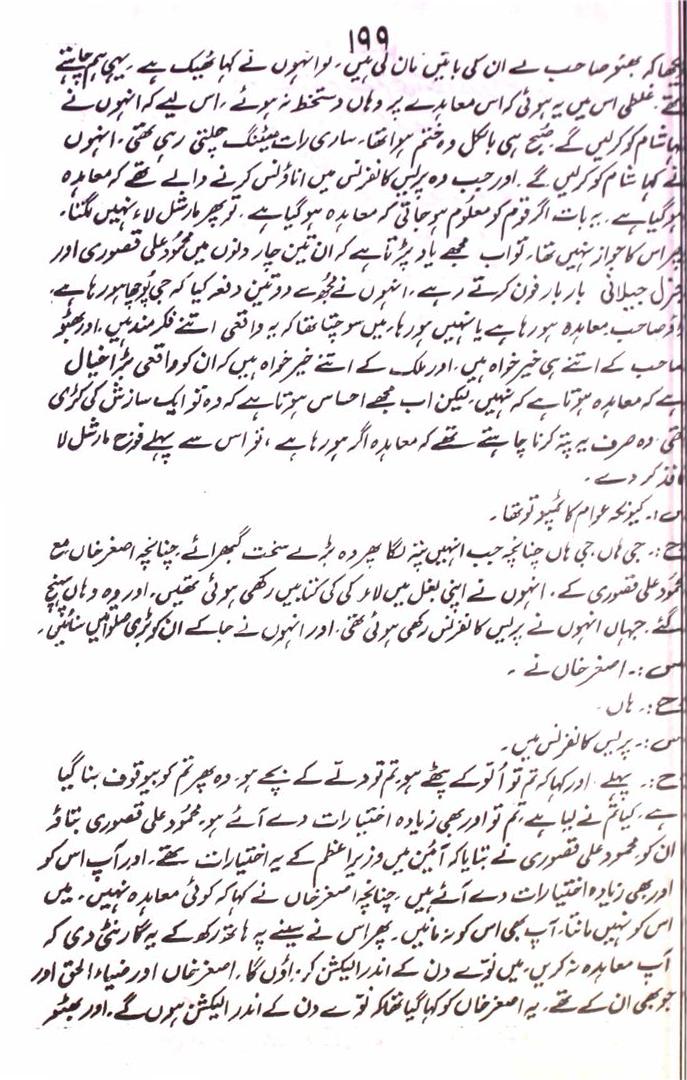 ۱۹۹
کہ بھٹو صاحب نے ان کی باتیں مان لی ہیں۔ تو انہوں نے کہا ٹھیک ہے۔ یہی ہم چاہتے
تھے۔ غلطی اس میں یہ ہوئی کہ اس معاہدے پر وہاں دستخط نہ ہوئے۔ اس لیے کہ انہوں نے
کہا شام کو کرلیں گے۔ صبح ہی بالکل وہ ختم ہوا تھا۔ ساری رات میٹنگ چلتی رہی تھی۔ انہوں
نے کہا شام کو کرلیں گے۔ اور جب وہ پریس کانفرنس میں اناؤنس کرنے والے تھے کہ معاہدہ
ہو گیا ہے۔ یہ بات اگر قوم کو معلوم ہو جاتی کہ معاہدہ ہو گیا ہے۔ تو پھر مارشل لاء نہیں لگتا۔
پھر اس کا جواز نہیں تھا۔ تو اب مجھے یاد پڑتا ہے کہ ان تین چار دنوں میں محمود علی قصوری اور
جنرل جیلانی بار بار فون کرتے رہے۔ انہوں نے مجھ سے دو تین دفعہ کیا کہ جی پُوچھا ہو رہا ہے،
صاحب معاہدہ ہو رہا ہے یا نہیں ہو رہا۔ میں سوچتا تھا کہ یہ واقعی اتنے فکر مند ہیں۔ اور بھٹو
صاحب کے اتنے ہی خیر خواہ ہیں۔ اور ملک کے اتنے خیر خواہ ہیں کہ ان کو واقعی بڑا خیال
ہے کہ معاہدہ ہوتا ہے کہ نہیں۔ لیکن اب مجھے احساس ہوتا ہے کہ وہ تو ایک سازش کی کڑی
تھی۔ وہ صرف یہ پتہ کرنا چاہتے تھے کہ معاہدہ اگر ہو رہا ہے، تو اس سے پہلے فوج مارشل لا
نافذ کر دے۔
س:۔ کیونکہ عوام کا ٹمپو تو تھا۔
ج:۔ جی ہاں، جی ہاں چنانچہ جب انہیں پتہ لگا پھر وہ بڑے سخت گھبرائے۔ چنانچہ اصغر خاں مع
محمود علی قصوری کے۔ انہوں نے اپنی بغل میں لاء کی کی کتابیں رکھی ہوئی تھیں۔ اور وہ وہاں پہنچ
گئے۔ جہاں انہوں نے پریس کانفرنس رکھی ہوئی تھی۔ اور انہوں نے جاکے ان کو بڑی صلواتیں سنائیں۔
س:۔ اصغر خاں نے۔
ج:۔ ہاں۔
س:۔ پریس کانفرنس میں۔
ج:۔ پہلے۔ اور کہا کہ تم تو اُلو کے پٹھے ہو، تم تو دلّے کے بچے ہو۔ وہ پھر تم کو بیوقوف بنا گیا
ہے۔ کیا تم نے لیا ہے، تم تو اور بھی زیادہ اختیارات دے آئے ہو۔ محمود علی قصوری بتاؤ
ان کو۔ محمود علی قصوری نے بتایا کہ آئین میں وزیر اعظم کے یہ اختیارات تھے۔ اور آپ اس کو
اور بھی زیادہ اختیارات دے آئے ہیں۔ چنانچہ اصغر خاں نے کہا کہ کوئی معاہدہ نہیں۔ میں
اس کو نہیں مانتا۔ آپ بھی اس کو نہ مانیں۔ پھر اس نے سینے پہ ہاتھ رکھ کے یہ گارنٹی دی کہ
آپ معاہدہ نہ کریں۔ میں نوّے دن کے اندر الیکشن کراؤں گا۔ اصغر خاں اور ضیاء الحق اور
جو بھی ان کے تھے۔ یہ اصغر خاں کو کہا گیا تھا کہ نوّے دن کے اندر الیکشن ہوں گے۔ اور بھٹو